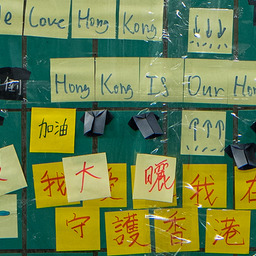 We Love Hong Kong
↓↓↓
Hong Kong Is Our Hon
↑↑↑
加油
大 曬
我 愛 我 在
守 護 香 港